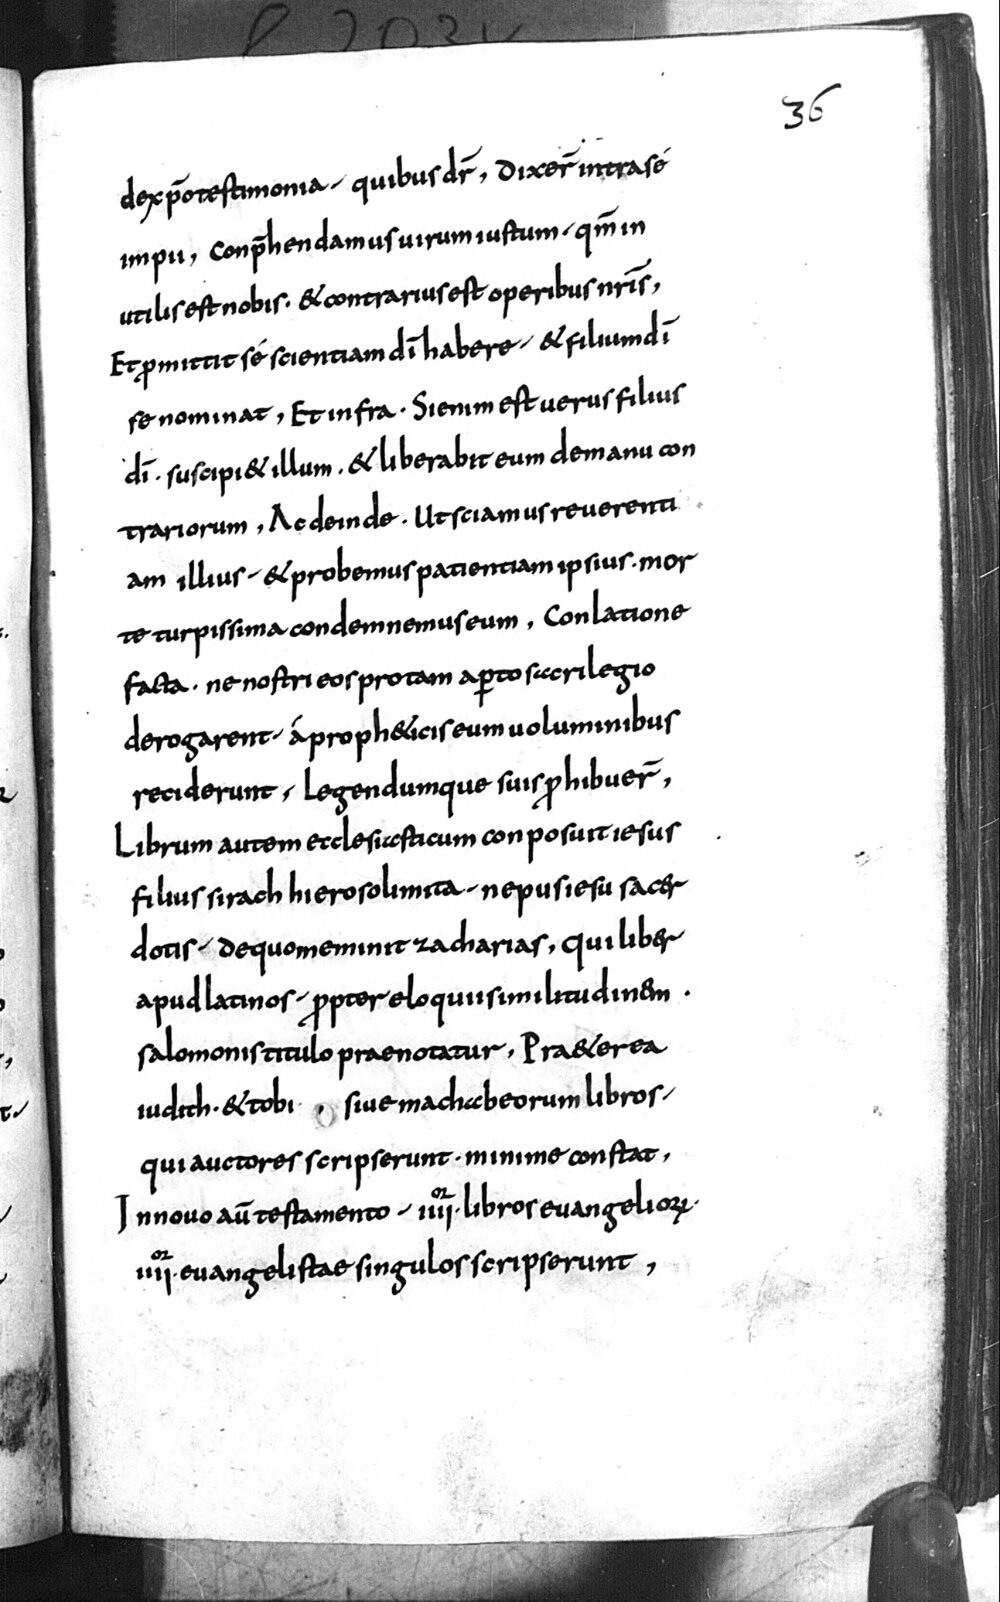 36
dexp̄o testimonia, quibus dr̄, Dixer̄ intra sé
impii, Conp̄hendamus uirum iustum, qm̄ in
utilis est nobis. & contrarius est operibus nr̄is,
Et ꝓmittit sé scientiam dī habere, & filium dī
se nominat, Et infra. Si enim est uerus filius
dī. suscipi& illum. & liberabit eum de manu con
trariorum, Ac deinde. Ut sciamus reuerenti
am illius, & probemus patientiam ipsius. mor
te turpissima condemnemus eum, Conlatione
facta. ne nostri eos pro tam aꝑto sacrilegio
derogarent, á proph&icis eum uoluminibus
reciderunt, Legendumque suis ꝓhibuer̄,
Librum autem ecclesiasticum conposuit iesus
filius sirach hierosolimita, nepus iesu sacer
dotis, de quo meminit zacharias, qui liber
apud latinos, ꝓpter eloquii similitudinem.
salomonis titulo praenotatur, Pra&erea
iudith. & tobi, siue machabeorum libros,
qui auctores scripserunt. minime constat,
In nouo aū testamento, iiii^or. libros euangelioꝝ.
iiii^or. euangelistae singulos scripserunt,